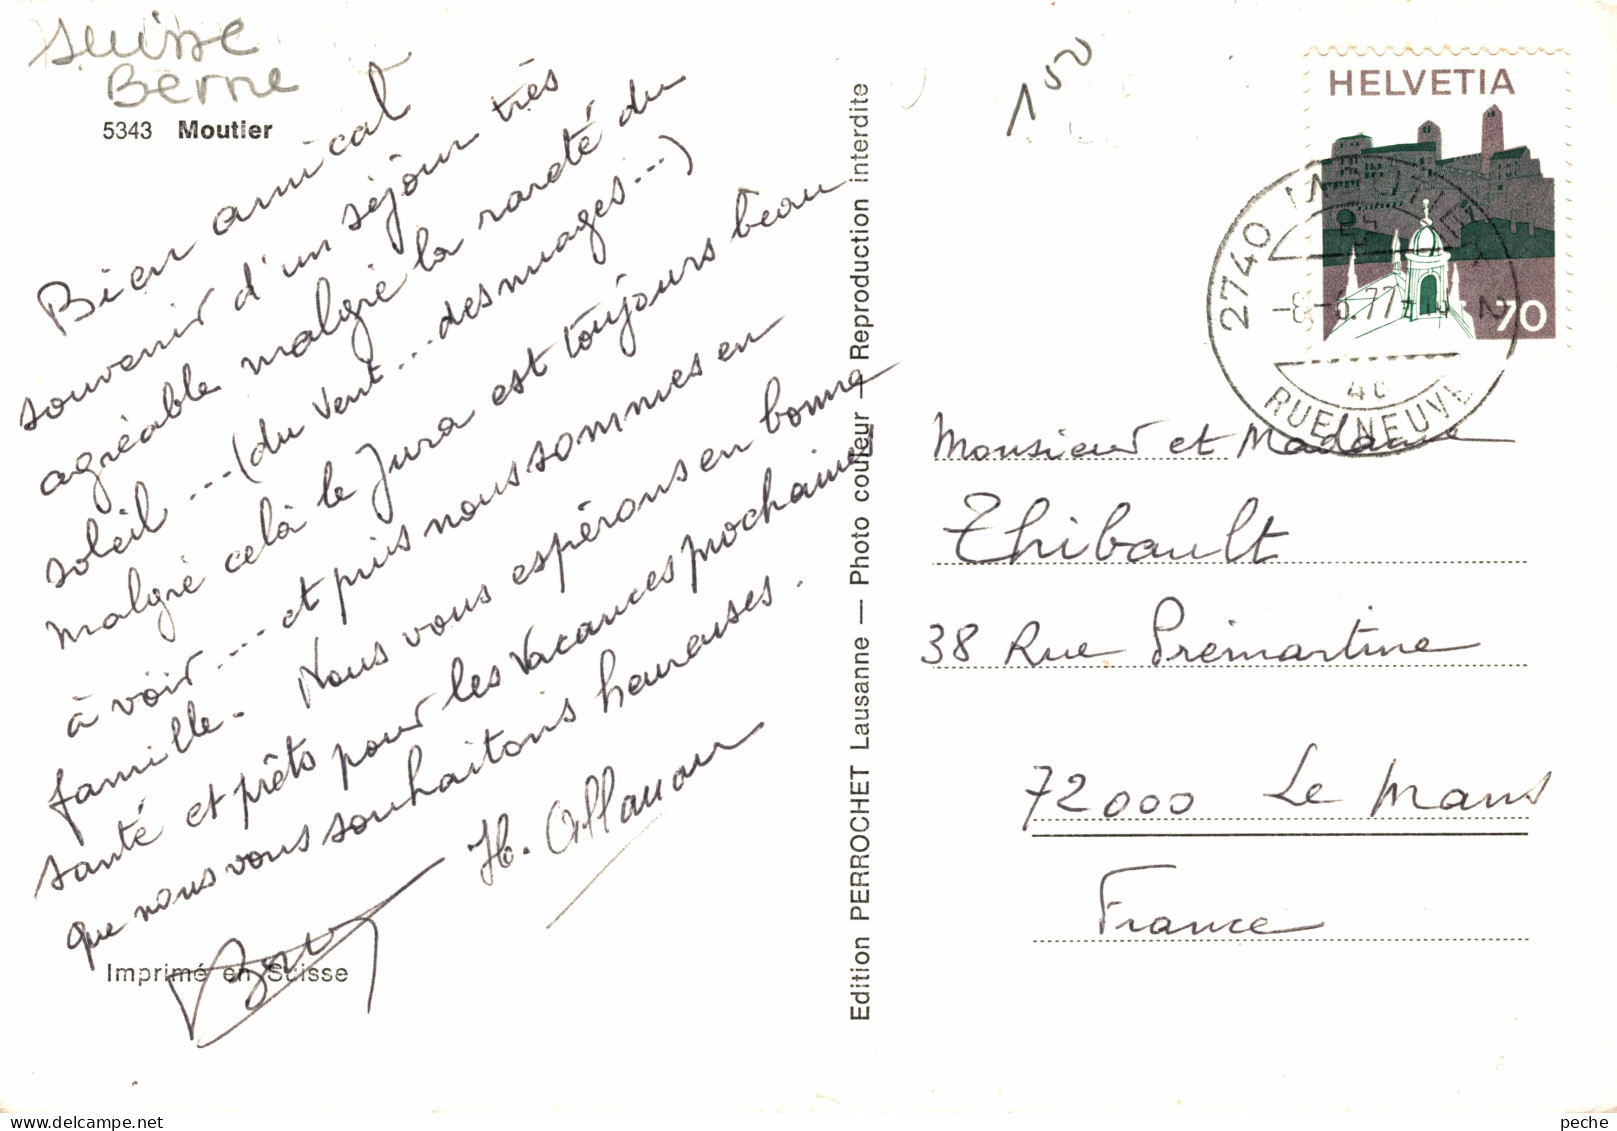 Suisse
Berne
5343 Moutier
Bien amical
souvenir d'un séjour très
agréable malgré la rareté du
soleil ... (du vent ... des nuages ...)
malgré celà le Jura est toujours beau
à voir .... et puis nous sommes en
famille. Nous vous espérons en bonne
santé et prêts pour les vacances prochaines
que nous vous souhaitons heureuses.
Imprimé en Suisse
Edition PERROCHET Lausanne — Photo couleur — Reproduction interdite
150
HELVETIA
70
2740
-8-6.77
RUE NEUVE
Monsieur et Madame
Thibault
38 Rue Prémartine
72000 Le Mans
France
peche